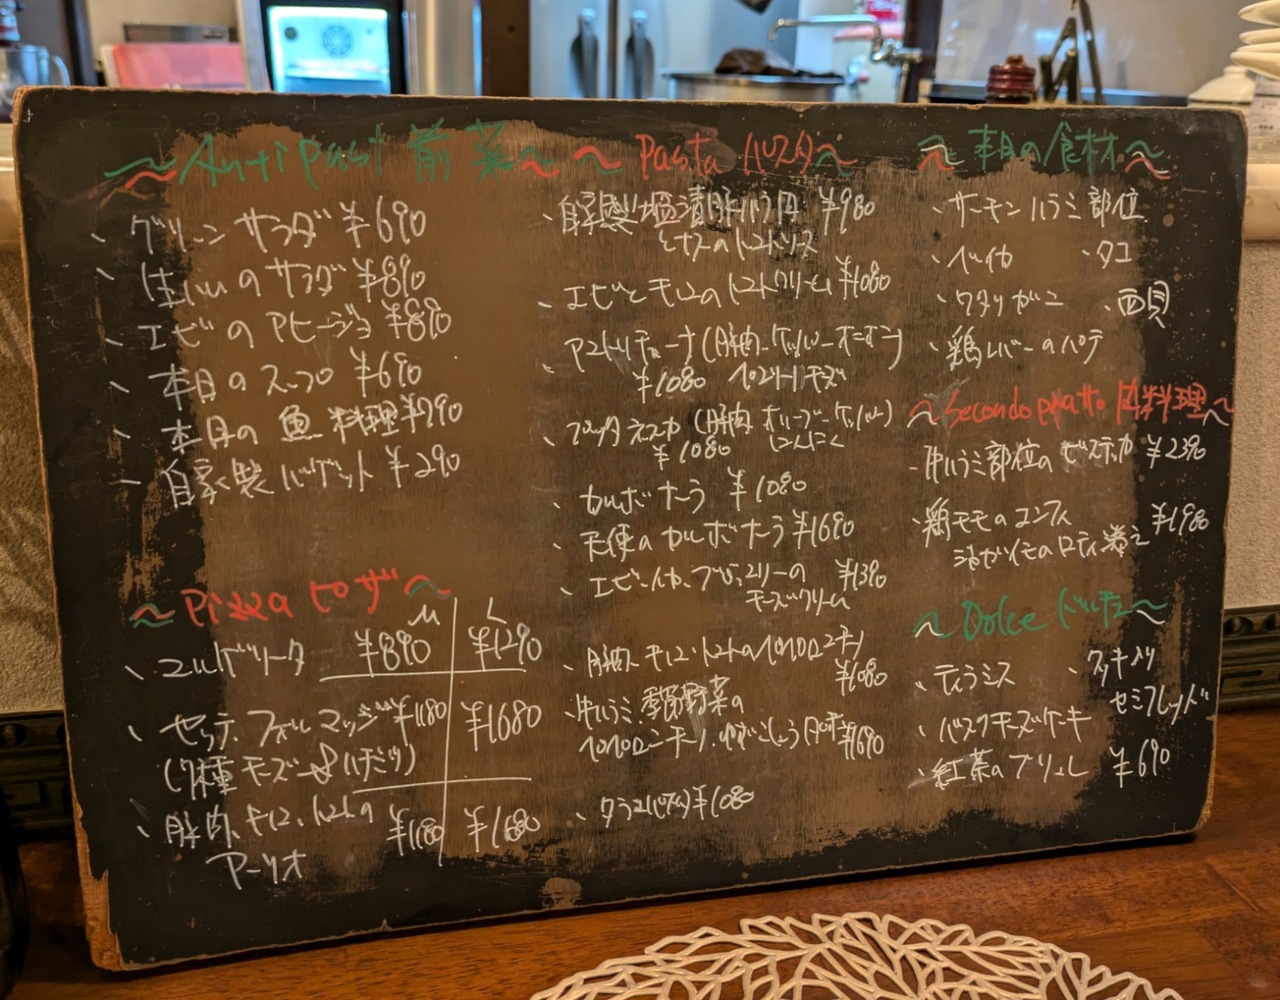 〜Antipast 前菜〜
、グリーンサラダ ¥690
、生ハムのサラダ ¥890
、エビのアヒージョ ¥890
、本日のスープ ¥690
、本日の魚料理 ¥790
、自家製バゲット ¥290
〜Pizza ピザ〜
M L
、マルゲリータ ¥890 ¥1290
、セッテ・フォルマッジ ¥1180 ¥1680
(7種チーズ ハチミツ)
、豚肉、キノコ、トマトの ¥1180 ¥1680
アーリオ
〜Pasta パスタ〜
、自家製塩漬豚バラ肉 ¥980
とナスのトマトソース
、エビとキノコのトマトクリーム ¥1080
アマトリチャーナ(豚肉、ケッパー、オニオン)
¥1080 ペコリーノチーズ
、プッタネスカ(豚肉 オリーブ、ケッパー)
¥1080 にんにく
、カルボナーラ ¥1080
、天使のカルボナーラ ¥1690
、エビ、イカ、ブロッコリーの ¥1390
チーズクリーム
、豚肉、キノコ、トマトのペペロンチーノ
¥1080
、牛ハラミ、季節野菜の
ペペロンチーノ、ゆずこしょう ¥1690
、タラコパスタ ¥1080
〜本日の食材〜
、サーモンハラミ部位
、ベイカ 、タコ
、ワタリガニ 、西貝
、鶏レバーのパテ
〜Secondo piatto 肉料理〜
、牛ハラミ部位のビステッカ ¥2390
、鶏モモのコンフィ ¥1980
ジャガイモのロティ添え
〜Dolce ドルチェ〜
、ティラミス 、クッキー入り
セミフレッド
、バスクチーズケーキ
、紅茶のブリュレ ¥690